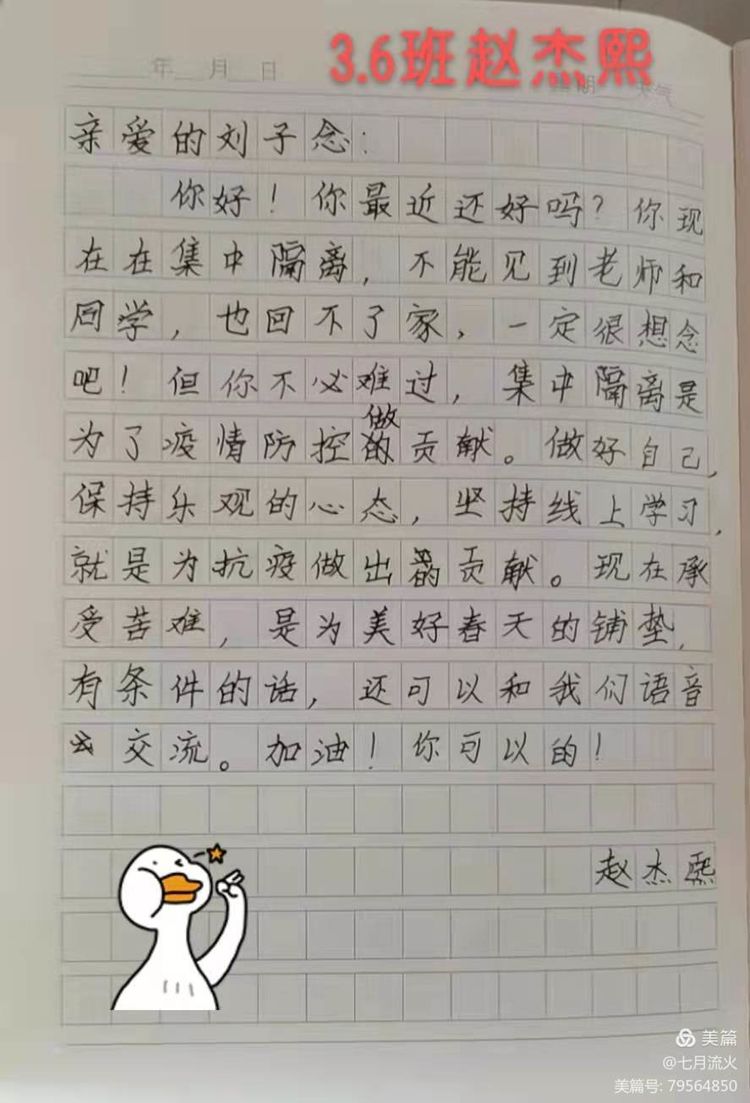 3.6班赵杰熙
年 月 日
亲爱的刘子念：
你好！你最近还好吗？你现
在在集中隔离，不能见到老师和
同学，也回不了家，一定很想念
吧！但你不必难过，集中隔离是
做
为了疫情防控的贡献。做好自己，
保持乐观的心态，坚持线上学习，
就是为抗疫做出的贡献。现在承
受苦难，是为美好春天的铺垫，
有条件的话，还可以和我们语音
交流。加油！你可以的！
赵杰熙
美篇
@七月流火
美篇号: 79564850